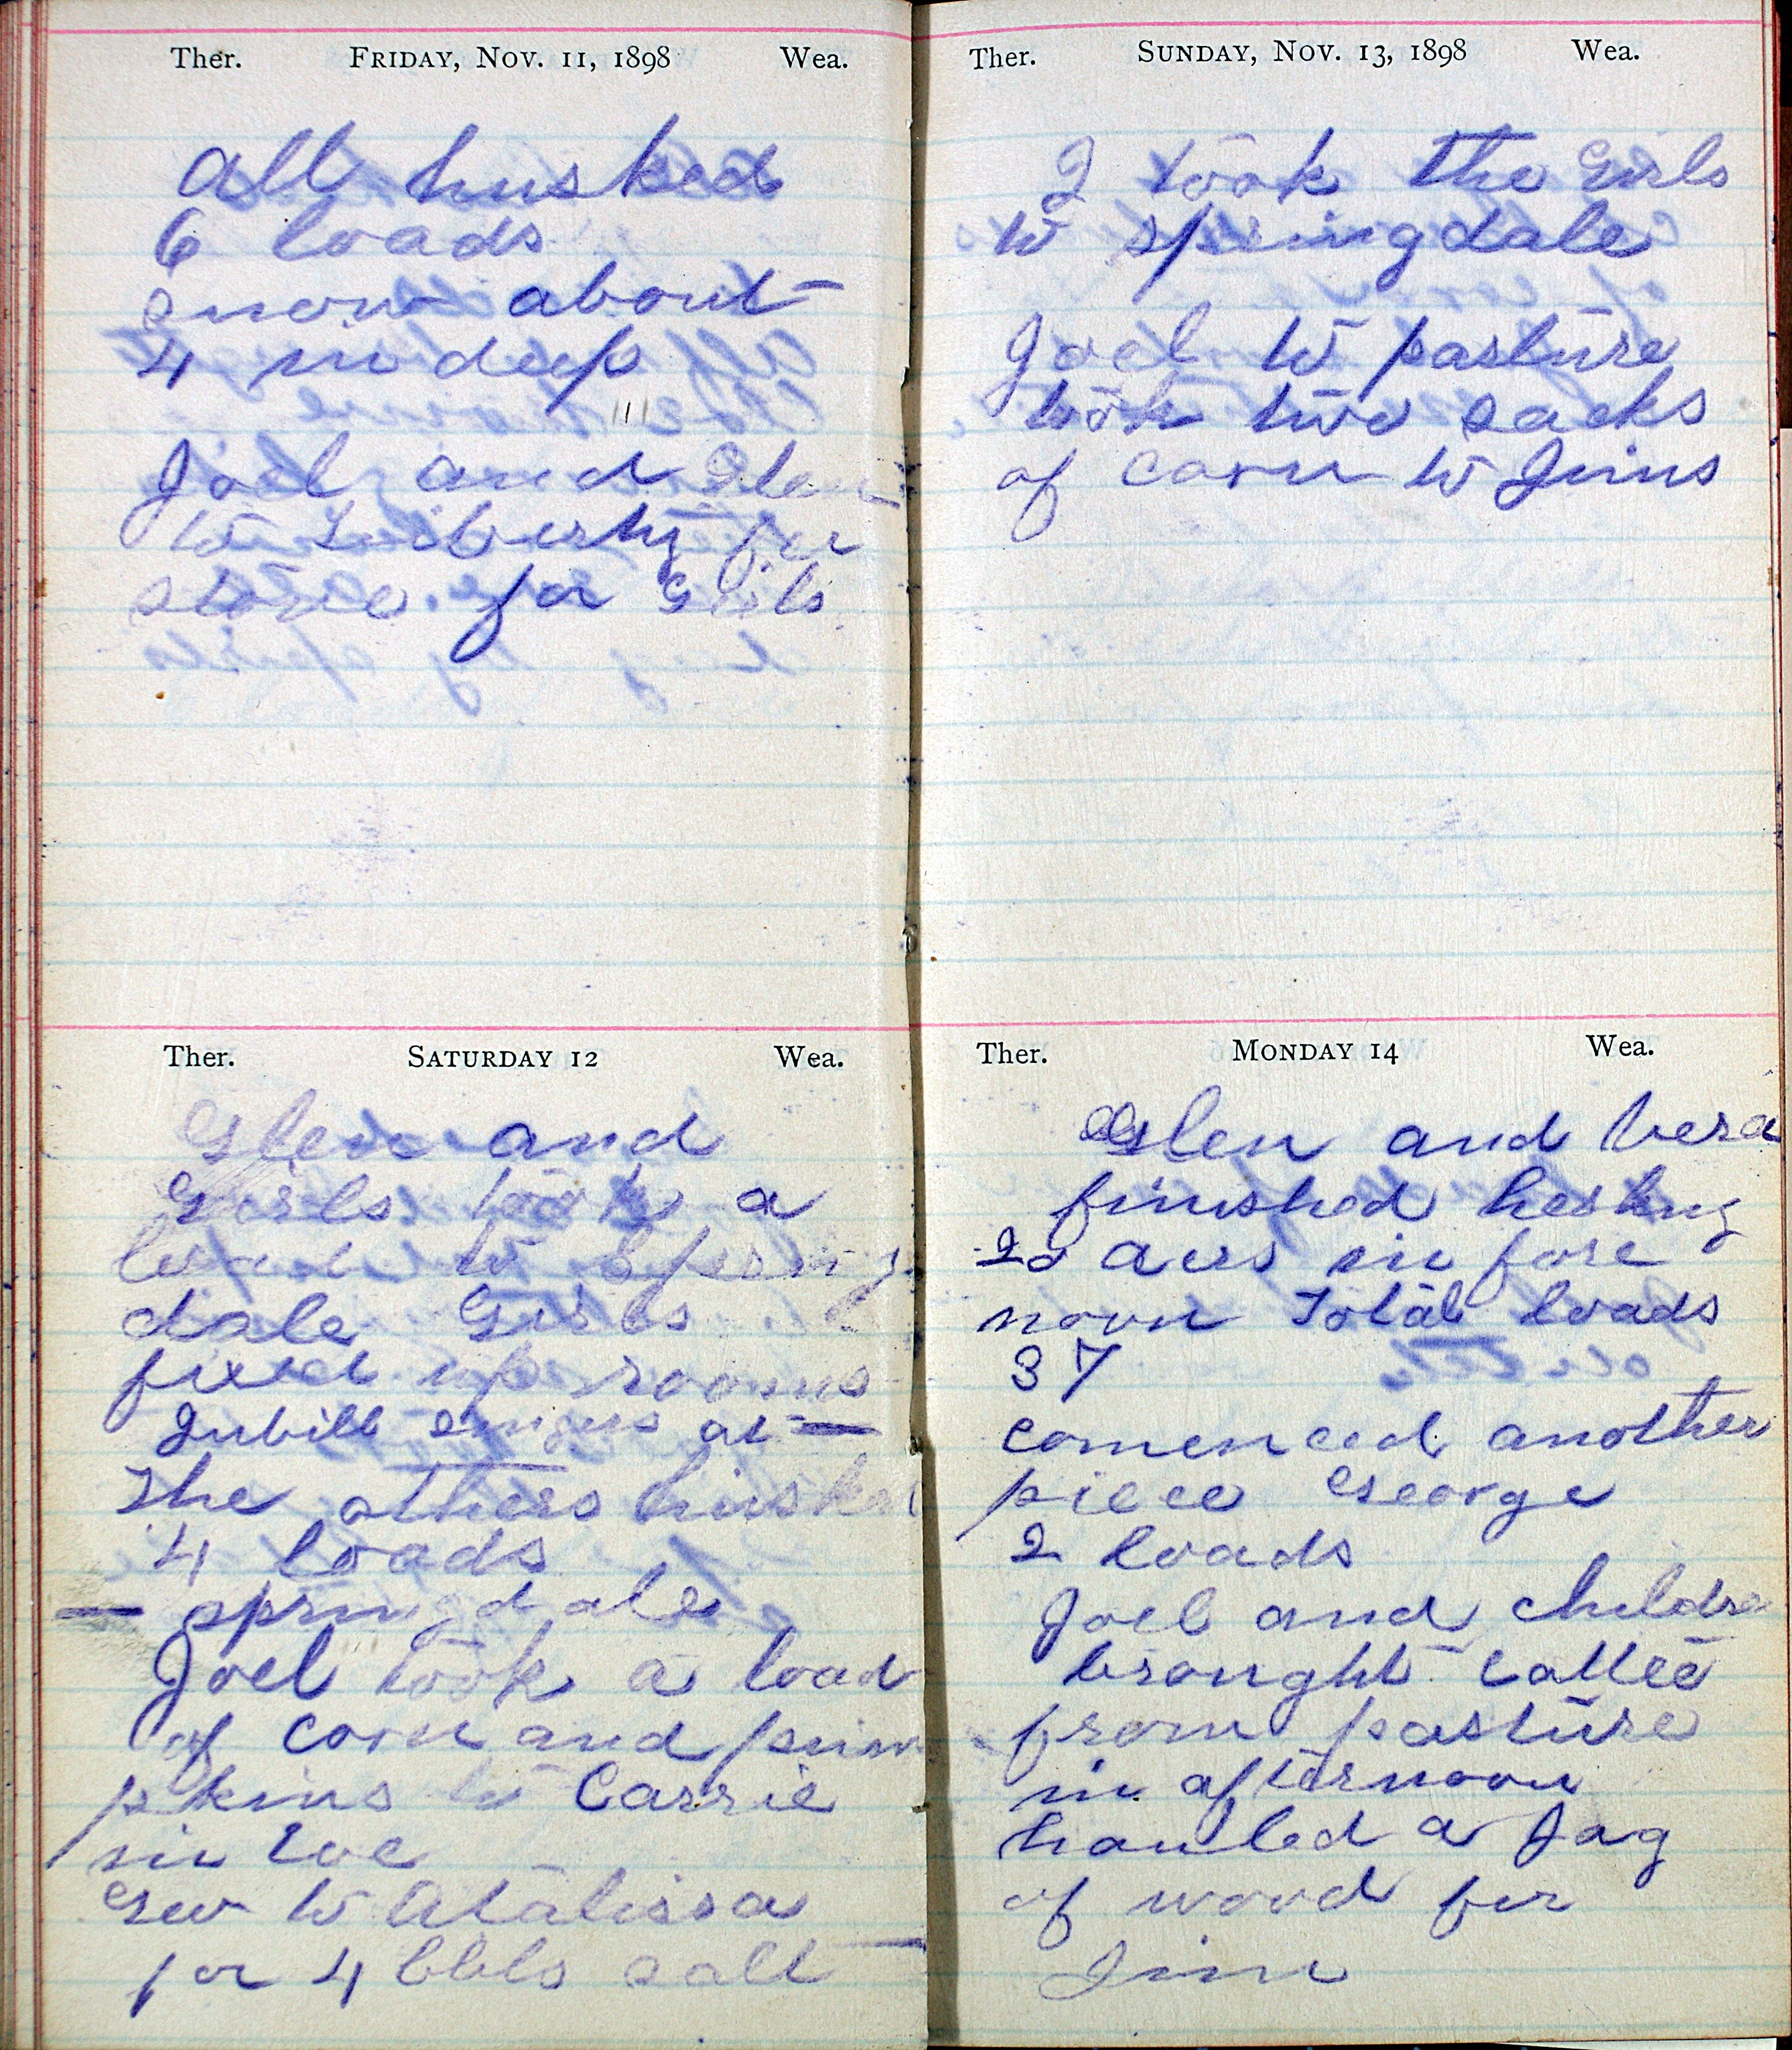 Ther. FRIDAY, NOV. 11, 1898 Wea.
All husked
6 loads
snow about
4 in deep
Joel and Glen
to Liberty for
stove for Girls
Ther. SATURDAY 12 Wea.
Glen and
Girls took a
load to Spring
dale Girls
fixed up rooms
Jubill singers at —
The others husked
4 loads
— springdale
Joel took a load
of corn and pum
pkins to Carrie
in
Geo to Atalissa
for 4 bbls salt
Ther. SUNDAY, NOV. 13, 1898 Wea.
I took the Girls
to springdale
Joel to pasture
took two sacks
of corn to Jims
Ther. MONDAY 14 Wea.
Glen and Vera
finished husking
20 acrs in fore
noon Total loads
37
comenced another
piece George
2 loads
Joel and childre
brought cattle
from pasture
in afternoon
hauled a Jag
of wood for
Jim